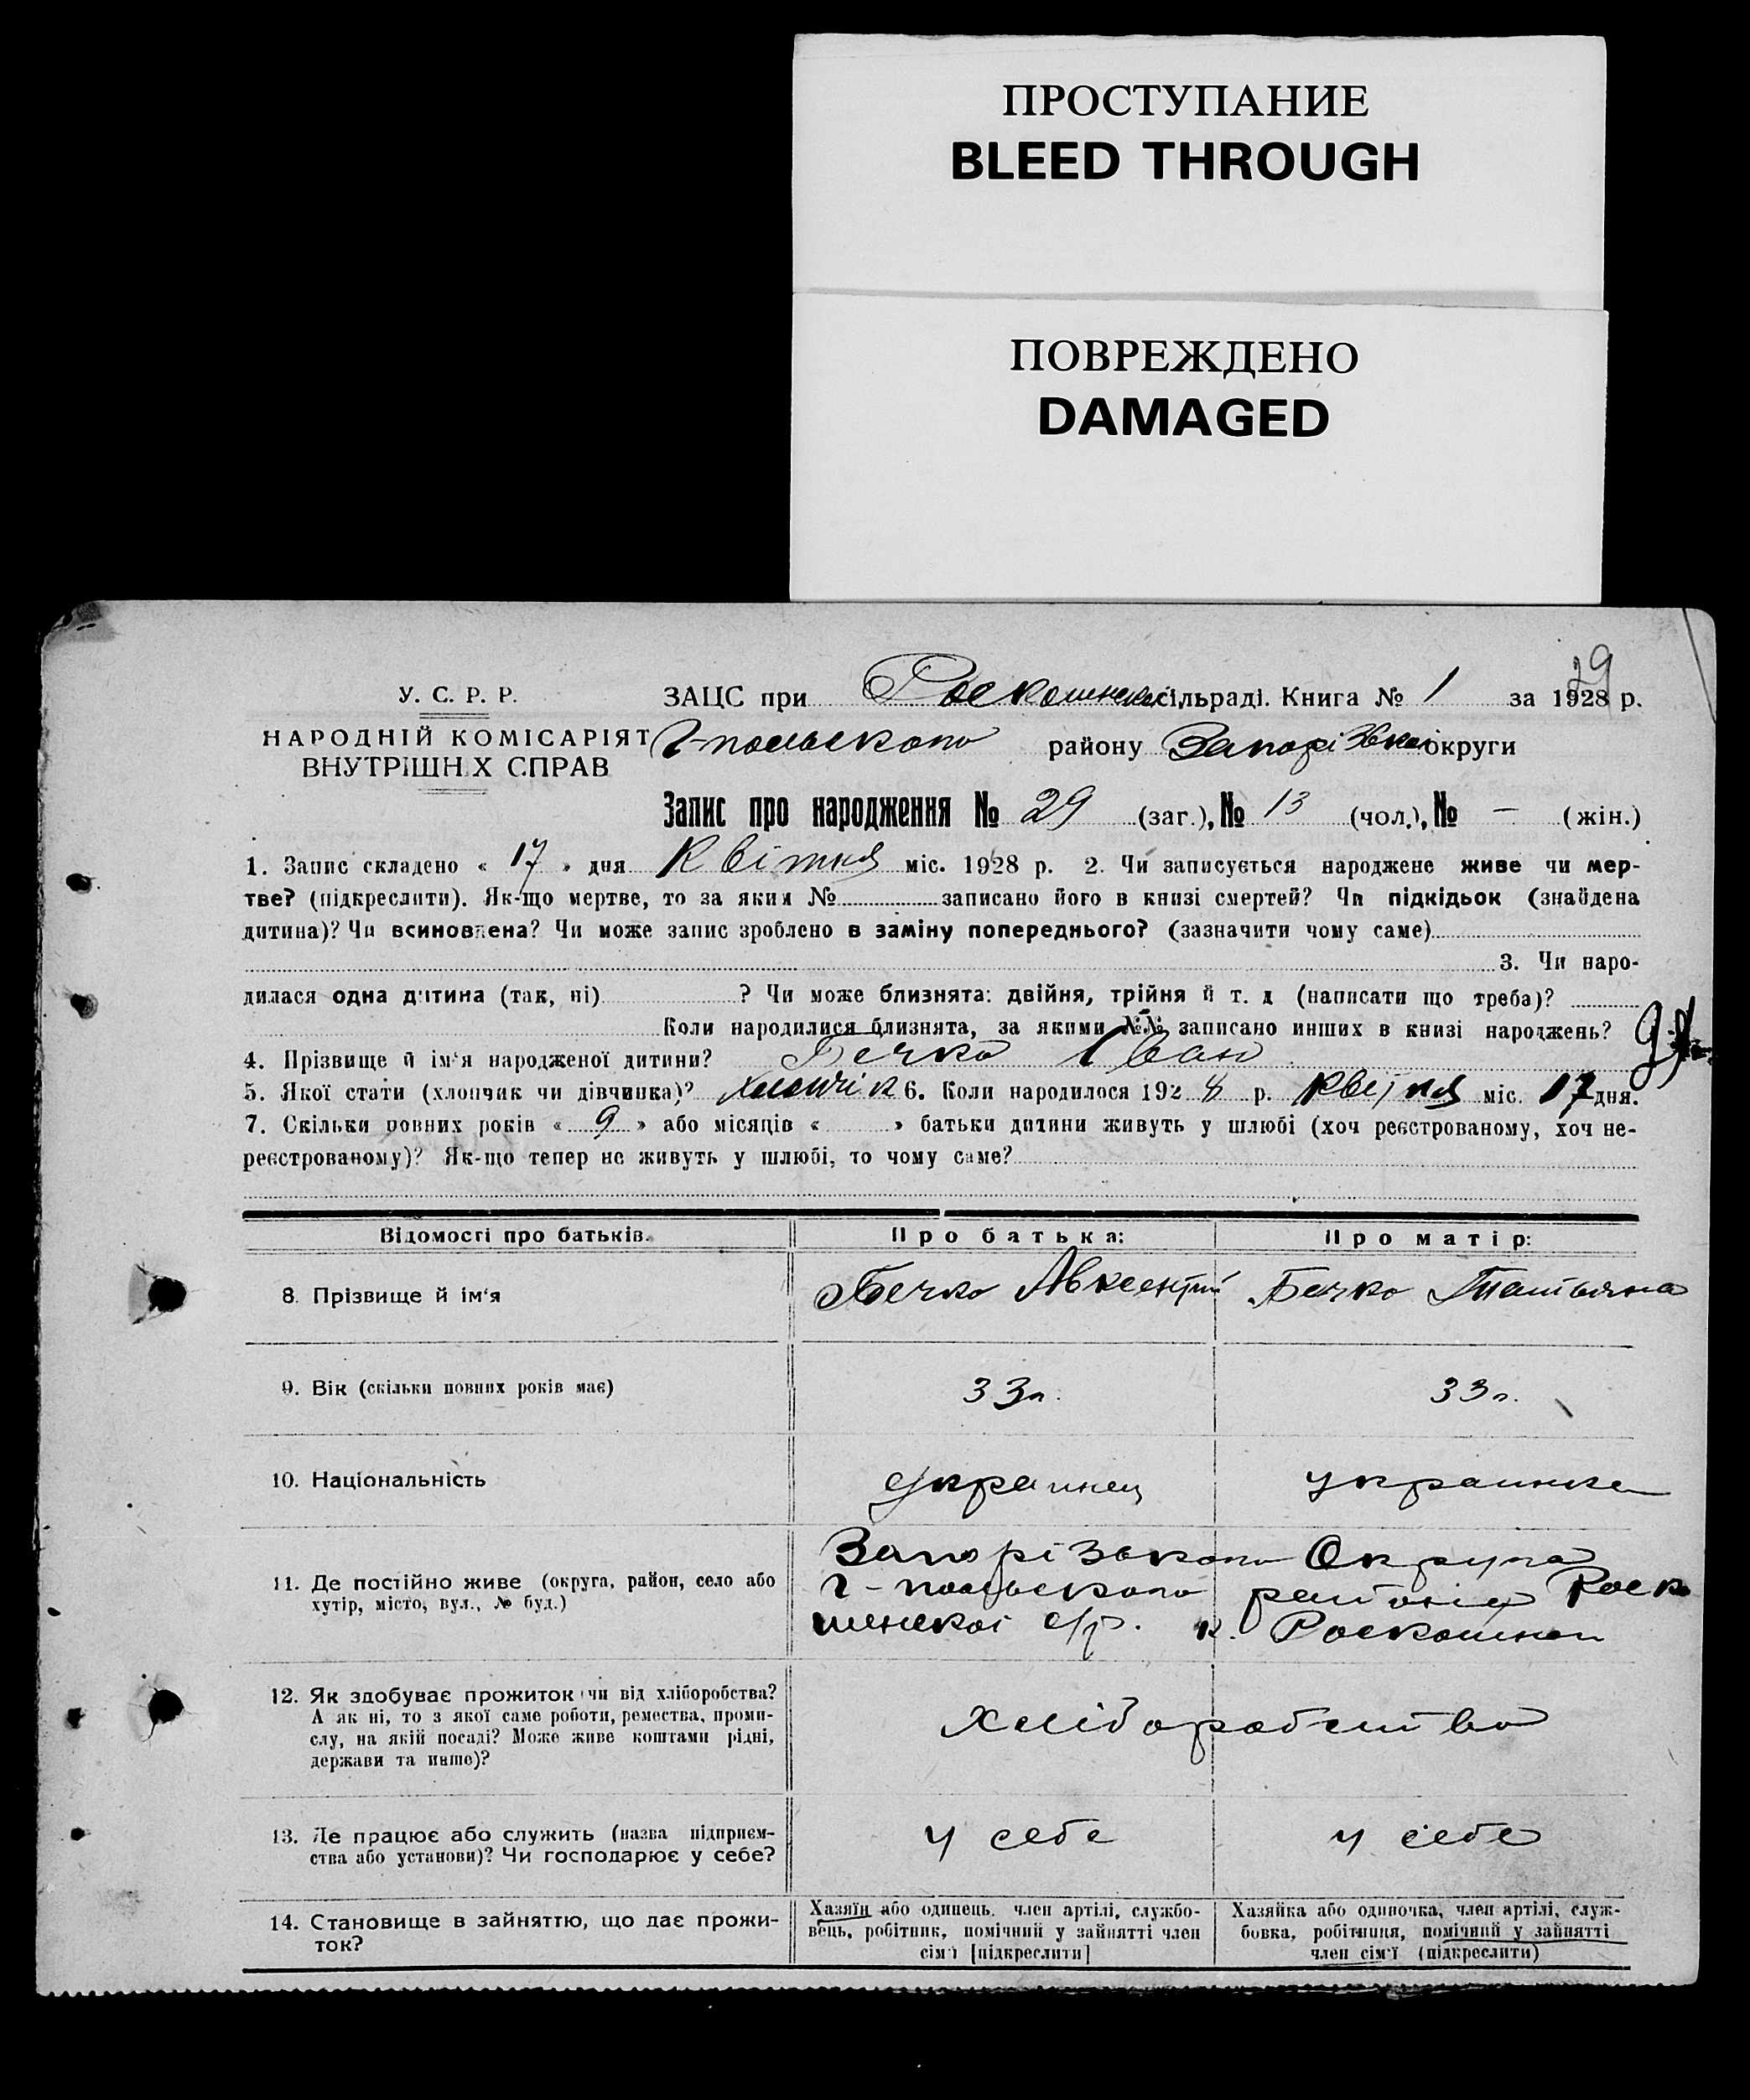 ПРОСТУПАНИЕ
BLEED THROUGH
ПОВРЕЖДЕНО
DAMAGED
29
У. С. Р. Р.
НАРОДНІЙ КОМІСАРІЯТ
ВНУТРІШНІХ СПРАВ
ЗАЦС при Роскошнскі сільраді. Книга № 1 за 1928 р.
г-польского району Запорізкої округи
Запис про народження № 29 (заг.), № 13 (чол.), № — (жін.)
1. Запис складено « 17 » дня Квітня міс. 1928 р. 2. Чи записується народжене живе чи мер-
тве? (підкреслити). Як-що мертве, то за яким № записано його в книзі смертей? Чи підкідьок (знайдена
дитина)? Чи всиновлена? Чи може запис зроблено в заміну попереднього? (зазначити чому саме)
3. Чи наро-
дилася одна дитина (так, ні) ? Чи може близнята: двійня, трійня й т. д (написати що треба)?
Коли народилися близнята, за якими №№ записано инших в книзі народжень?
4. Прізвище й ім'я народженої дитини? Бечко Іван
5. Якої стати (хлопчик чи дівчинка)? хлопчік 6. Коли народилося 1928 р. квітня міс. 17 дня.
7. Скільки повних років « 9 » або місяців « » батьки дитини живуть у шлюбі (хоч реєстрованому, хоч не-
реєстрованому)? Як-що тепер не живуть у шлюбі, то чому саме?
Відомості про батьків. Про батька: Про матір:
8. Прізвище й ім'я Бечко Авксентий Бечко Татьяна
9. Вік (скільки повних років має) 33 л. 33 л.
10. Національність украинец украинка
11. Де постійно живе (округа, район, село або
хутір, місто, вул., № буд.)
Запорізького Округа
г-польского района Роско
шнскої с/р. к. Роскошноя
12. Як здобуває прожиток чи від хліборобства?
А як ні, то з якої саме роботи, ремества, проми-
слу, на якій посаді? Може живе коштами рідні,
держави та инше)?
Хліборобство
13. Де працює або служить (назва підприєм-
ства або установи)? Чи господарює у себе?
у себе у себе
14. Становище в зайняттю, що дає прожи-
ток?
Хазяїн або одинець. член артілі, службо-
вець, робітник, помічний у зайнятті член
сім'ї [підкреслити]
Хазяйка або одиночка, член артілі, служ-
бовка, робітниця, помічний у зайнятті
член сім'ї (підкреслити)